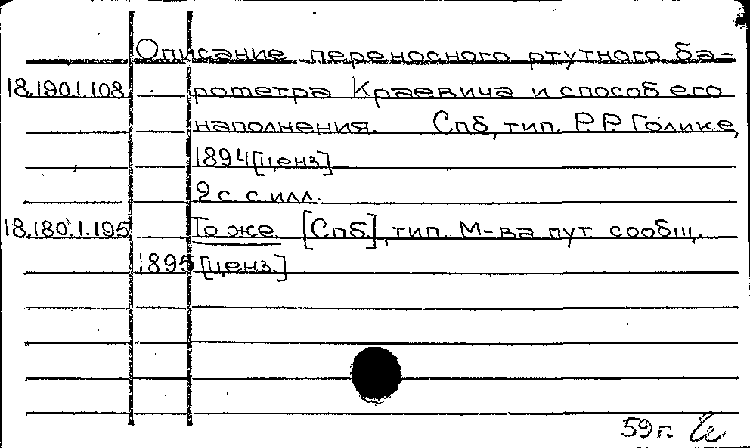 Описание переносного ртутного ба-
18.190.1.108 рометра Краевича и способ его
наполнения. Спб, тип. Р.Р. Голике,
1894 [ценз]
9 с. с илл.
18.180.1.195 То же [Спб.], тип. М-ва пут сообщ.
1895 [ценз.]
59 г.